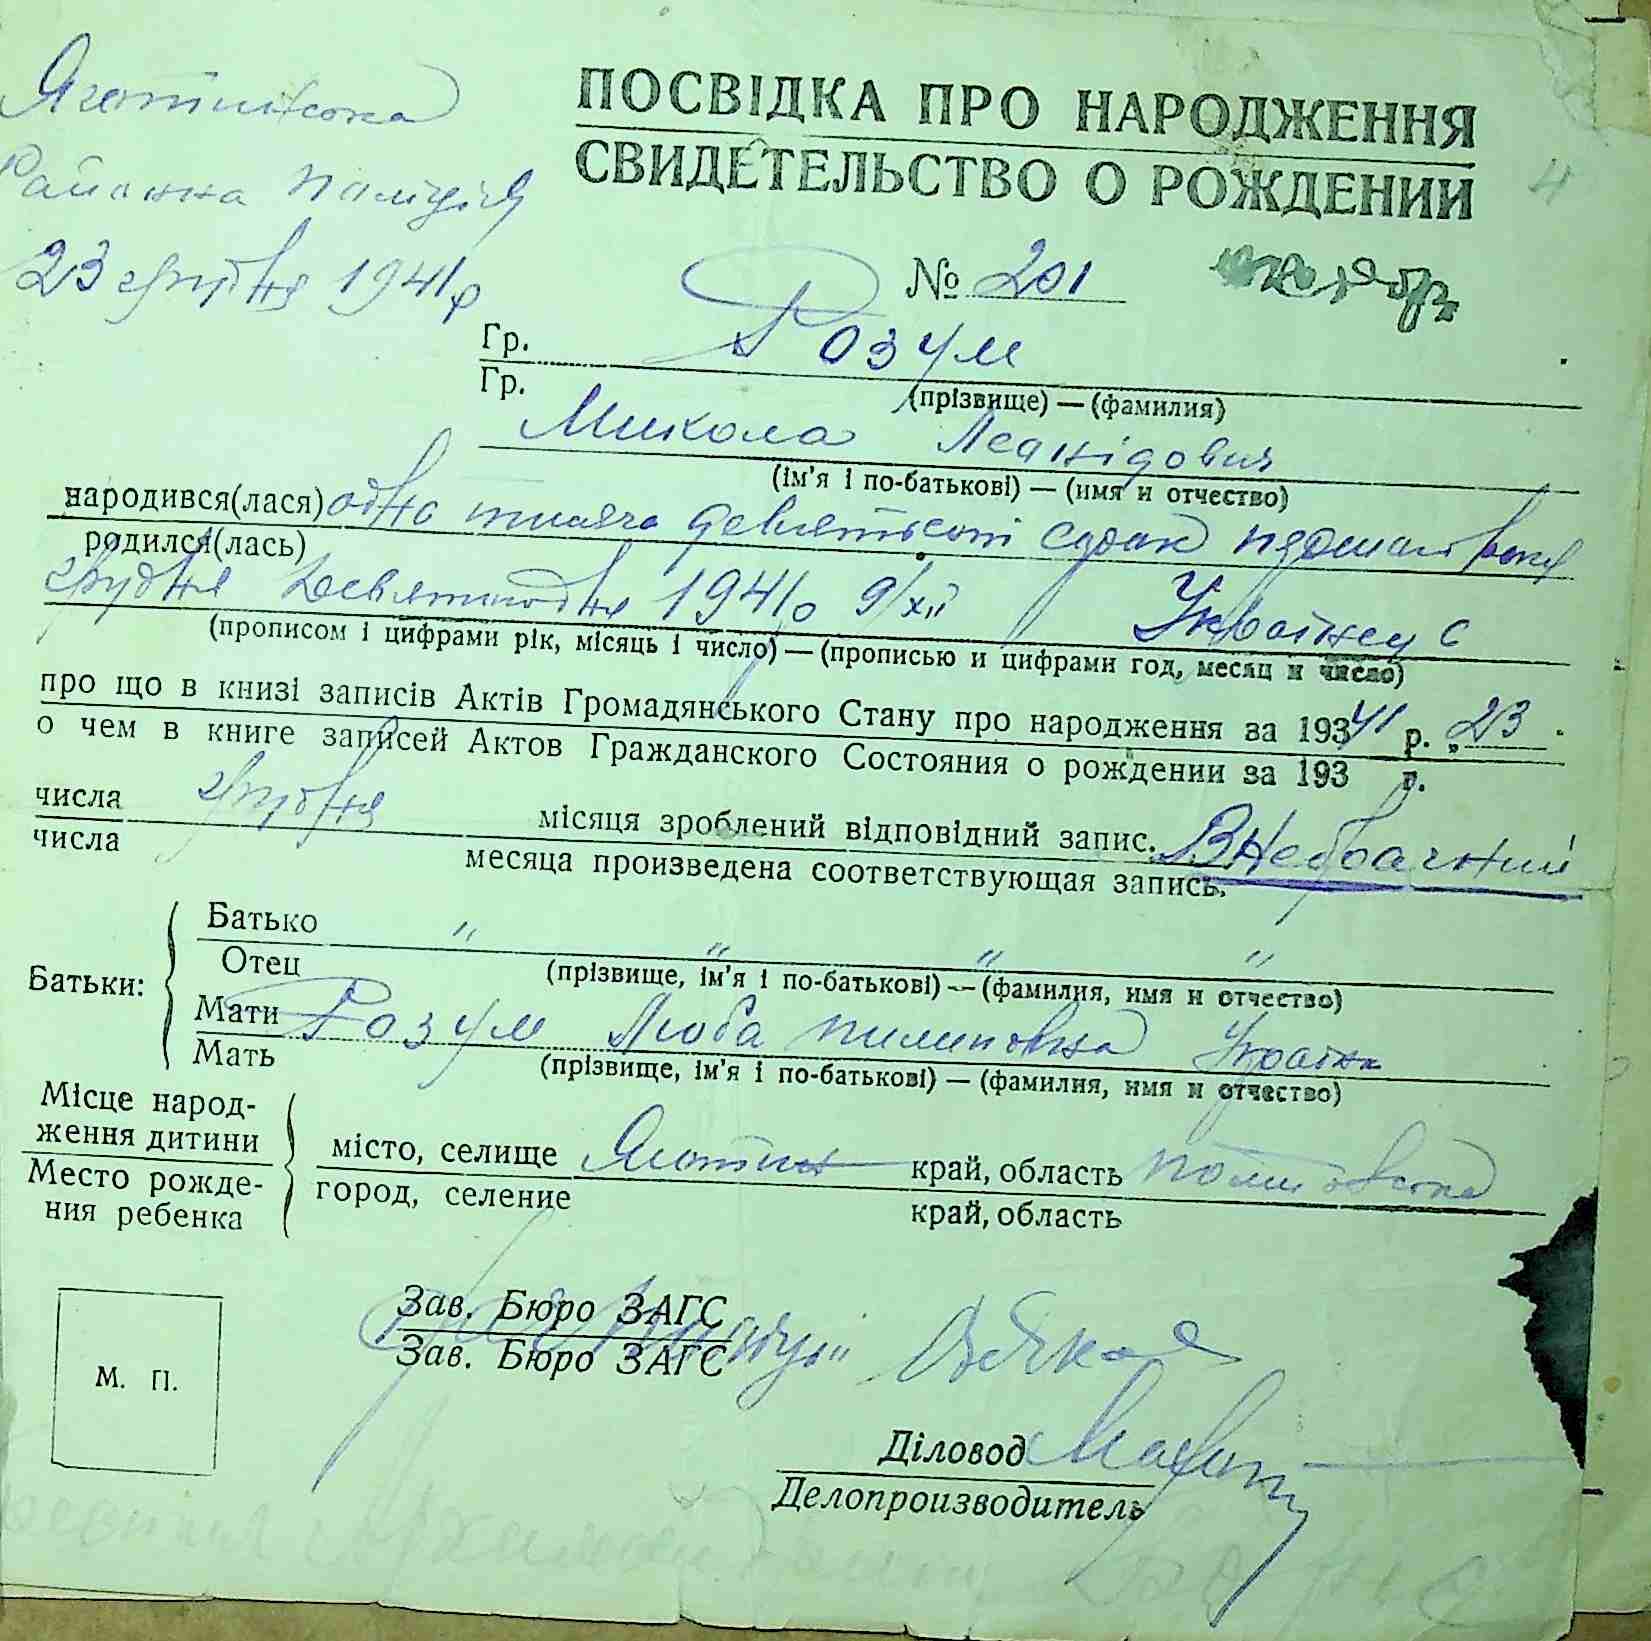 Яготинська
Районна Поліція
23 грудня 1941 р
ПОСВІДКА ПРО НАРОДЖЕННЯ
СВИДЕТЕЛЬСТВО О РОЖДЕНИИ
4
№ 201
Гр. Розум
Гр.
(прізвище) — (фамилия)
Микола Леанідович
(ім'я і по-батькові) — (имя и отчество)
народився(лася) одна тисяча девятьсот сорак
родился(лась)
грудня 1941 р 9/XII Українец
(прописом і цифрами рік, місяць і число) — (прописью и цифрами год, месяц и число)
про що в книзі записів Актів Громадянського Стану про народження за 193 41 р. „ 23
о чем в книге записей Актов Гражданского Состояния о рождении за 193 г.
числа грудня місяця зроблений відповідний запис. Внебрачний
числа месяца произведена соответствующая запись.
Батьки:
Батько " " " "
Отец
(прізвище, ім'я і по-батькові) — (фамилия, имя и отчество)
Мати Розум Люба Пилиповна Україн
Мать
(прізвище, ім'я і по-батькові) — (фамилия, имя и отчество)
Місце народ-
ження дитини
Место рожде-
ния ребенка
місто, селище Яготин край, область Полтовська
город, селение край, область
Зав. Бюро ЗАГС
Зав. Бюро ЗАГС
М. П.
Діловод
Делопроизводитель